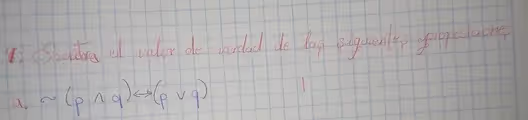 1. el valor de verdad de las siguientes proposiciones
a. ~(p ∧ q)↔(p ∨ q)